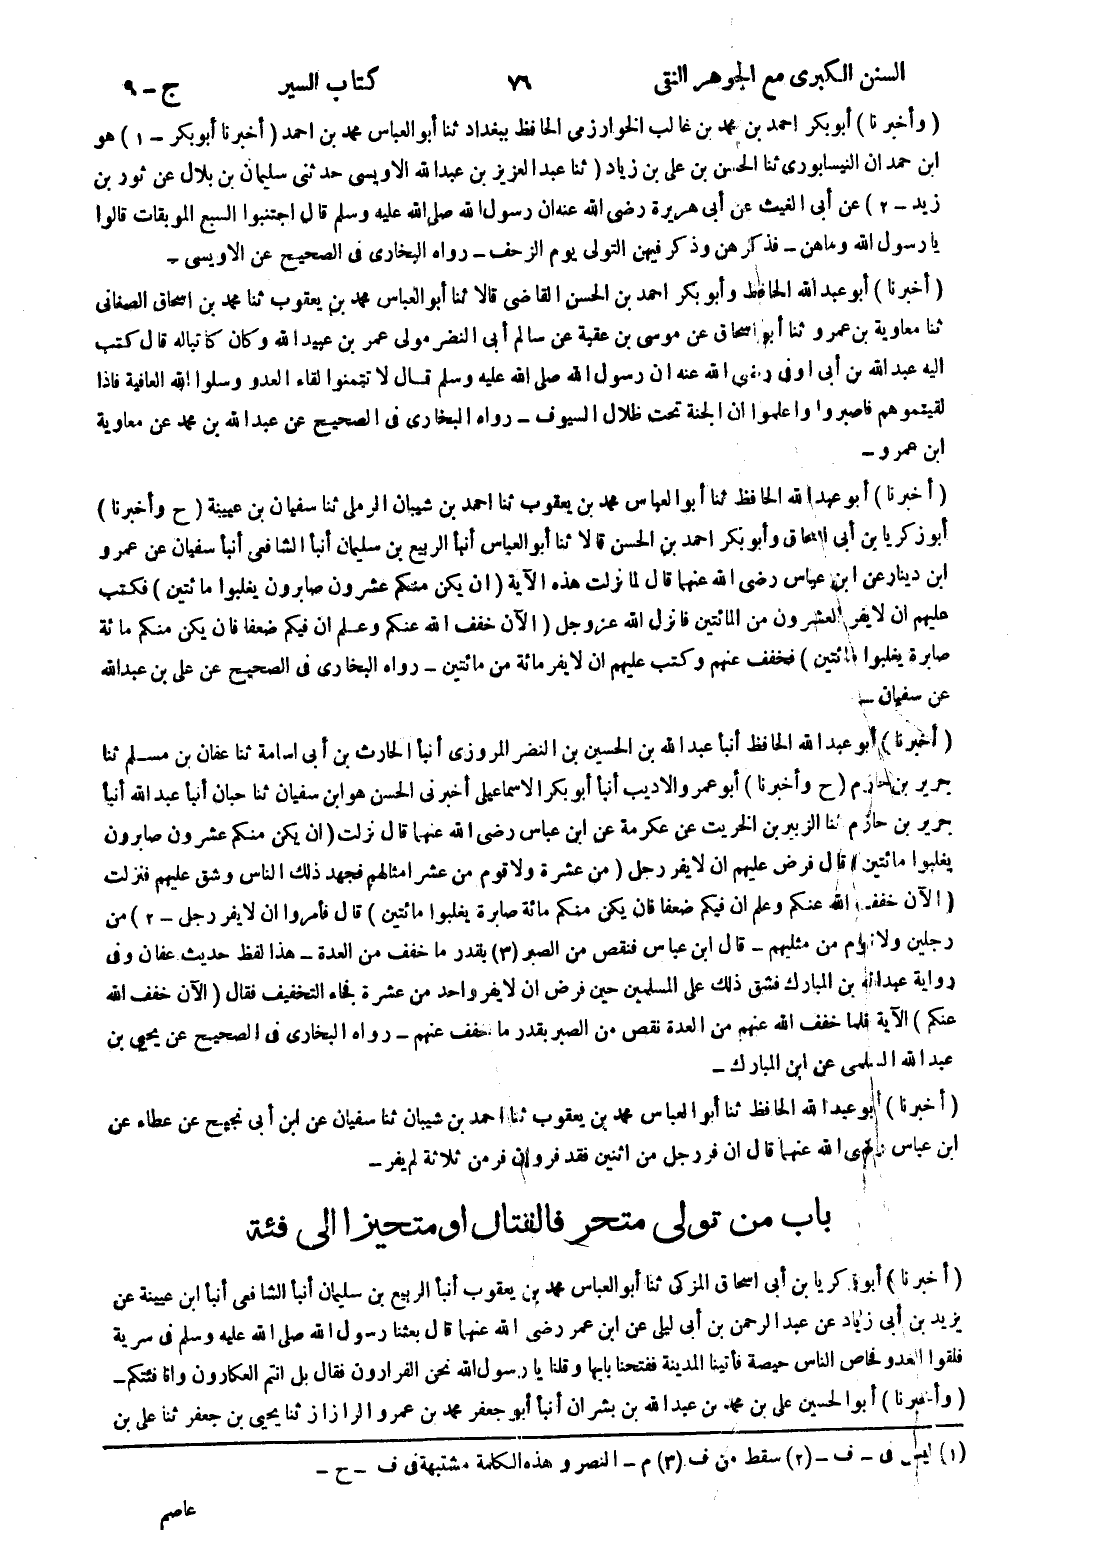 السنن الكبرى مع الجوهر النقى ٧٦ كتاب السير ج - ٩
( وأخبرنا ) أبوبكر احمد بن محمد بن غالب الخوارزمى الحافظ ببغداد ثنا أبوالعباس محمد بن احمد ( أخبرنا أبوبكر - ١ ) هو
ابن حمدان النيسابورى ثنا الحسن بن على بن زياد ( ثنا عبدالعزيز بن عبدالله الاويسى حدثنى سليمان بن بلال عن ثور بن
زيد - ٢ ) عن أبى الغيث عن أبى هريرة رضى الله عنه ان رسول الله صلى الله عليه وسلم قال اجتنبوا السبع الموبقات قالوا
يا رسول الله وماهن - فذكرهن وذكر فيهن التولى يوم الزحف - رواه البخارى فى الصحيح عن الاويسى -
( أخبرنا ) أبوعبدالله الحافظ وأبوبكر احمد بن الحسن القاضى قالا ثنا أبوالعباس محمد بن يعقوب ثنا محمد بن اسحاق الصغانى
ثنا معاوية بن عمرو ثنا أبو اسحاق عن موسى بن عقبة عن سالم أبى النضر مولى عمر بن عبيدالله وكان كاتبا له قال كتب
اليه عبدالله بن أبى اوفى رضى الله عنه ان رسول الله صلى الله عليه وسلم قال لا تتمنوا لقاء العدو وسلوا الله العافية فاذا
لقيتموهم فاصبروا واعلموا ان الجنة تحت ظلال السيوف - رواه البخارى فى الصحيح عن عبدالله بن محمد عن معاوية
ابن عمرو -
( أخبرنا ) أبوعبدالله الحافظ ثنا أبوالعباس محمد بن يعقوب ثنا احمد بن شيبان الرملى ثنا سفيان بن عيينة ( ح وأخبرنا )
أبوزكريا بن أبى اسحاق وأبوبكر احمد بن الحسن قالا ثنا أبوالعباس أنبأ الربيع بن سليمان أنبأ الشافعى أنبأ سفيان عن عمرو
ابن دينار عن ابن عباس رضى الله عنهما قال لما نزلت هذه الآية ( ان يكن منكم عشرون صابرون يغلبوا مائتين ) فكتب
عليهم ان لا يفر العشرون من المائتين فانزل الله عزوجل ( الآن خفف الله عنكم وعلم ان فيكم ضعفا فان يكن منكم مائة
صابرة يغلبوا مائتين ) فخفف عنهم وكتب عليهم ان لا يفر مائة من مائتين - رواه البخارى فى الصحيح عن على بن عبدالله
عن سفيان -
( أخبرنا ) أبو عبدالله الحافظ أنبأ عبدالله بن الحسين بن النضر المروزى أنبأ الحارث بن أبى اسامة ثنا عفان بن مسلم ثنا
جرير بن حازم ( ح وأخبرنا ) أبوعمرو الاديب أنبأ أبوبكر الاسماعيلى أخبرنى الحسن هو ابن سفيان ثنا حبان أنبأ عبدالله أنبأ
جرير بن حازم ثنا الزبير بن الخريت عن عكرمة عن ابن عباس رضى الله عنهما قال نزلت ( ان يكن منكم عشرون صابرون
يغلبوا مائتين ) قال فرض عليهم ان لا يفر رجل ( من عشرة ولا قوم من عشر امثالهم فجهد ذلك الناس وشق عليهم فنزلت
( الآن خفف الله عنكم وعلم ان فيكم ضعفا فان يكن منكم مائة صابرة يغلبوا مائتين ) قال فأمروا ان لا يفر رجل - ٢ ) من
رجلين ولا قوم من مثليهم - قال ابن عباس فنقص من الصبر (٣) بقدر ما خفف من العدة - هذا لفظ حديث عفان وفى
رواية عبدالله بن المبارك فشق ذلك على المسلمين حين فرض ان لا يفر واحد من عشرة فجاء التخفيف فقال ( الآن خفف الله
عنكم ) الآية فلما خفف الله عنهم من العدة نقص من الصبر بقدر ما خفف عنهم - رواه البخارى فى الصحيح عن يحيى بن
عبدالله السلمى عن ابن المبارك -
( أخبرنا ) أبوعبدالله الحافظ ثنا أبوالعباس محمد بن يعقوب ثنا احمد بن شيبان ثنا سفيان عن ابن أبى نجيح عن عطاء عن
ابن عباس رضى الله عنهما قال ان فر رجل من اثنين فقد فر وان فر من ثلاثة لم يفر -
باب من تولى متحرفا لقتال او متحيزا الى فئة
( أخبرنا ) أبوزكريا بن أبى اسحاق المزكى ثنا أبوالعباس محمد بن يعقوب أنبأ الربيع بن سليمان أنبأ الشافعى أنبأ ابن عيينة عن
يزيد بن أبى زياد عن عبدالرحمن بن أبى ليلى عن ابن عمر رضى الله عنهما قال بعثنا رسول الله صلى الله عليه وسلم فى سرية
فلقوا العدو فحاص الناس حيصة فأتينا المدينة ففتحنا بابها وقلنا يا رسول الله نحن الفرارون فقال بل انتم العكارون وانا فئتكم -
( وأخبرنا ) أبوالحسين على بن محمد بن عبدالله بن بشران أنبأ أبوجعفر محمد بن عمرو الرازاز ثنا يحيى بن جعفر ثنا على بن
(١) ليس فى - ف - (٢) سقط من ف (٣) م - النصر وهذه الكلمة مشتبهة فى ف - ح -
عاصم